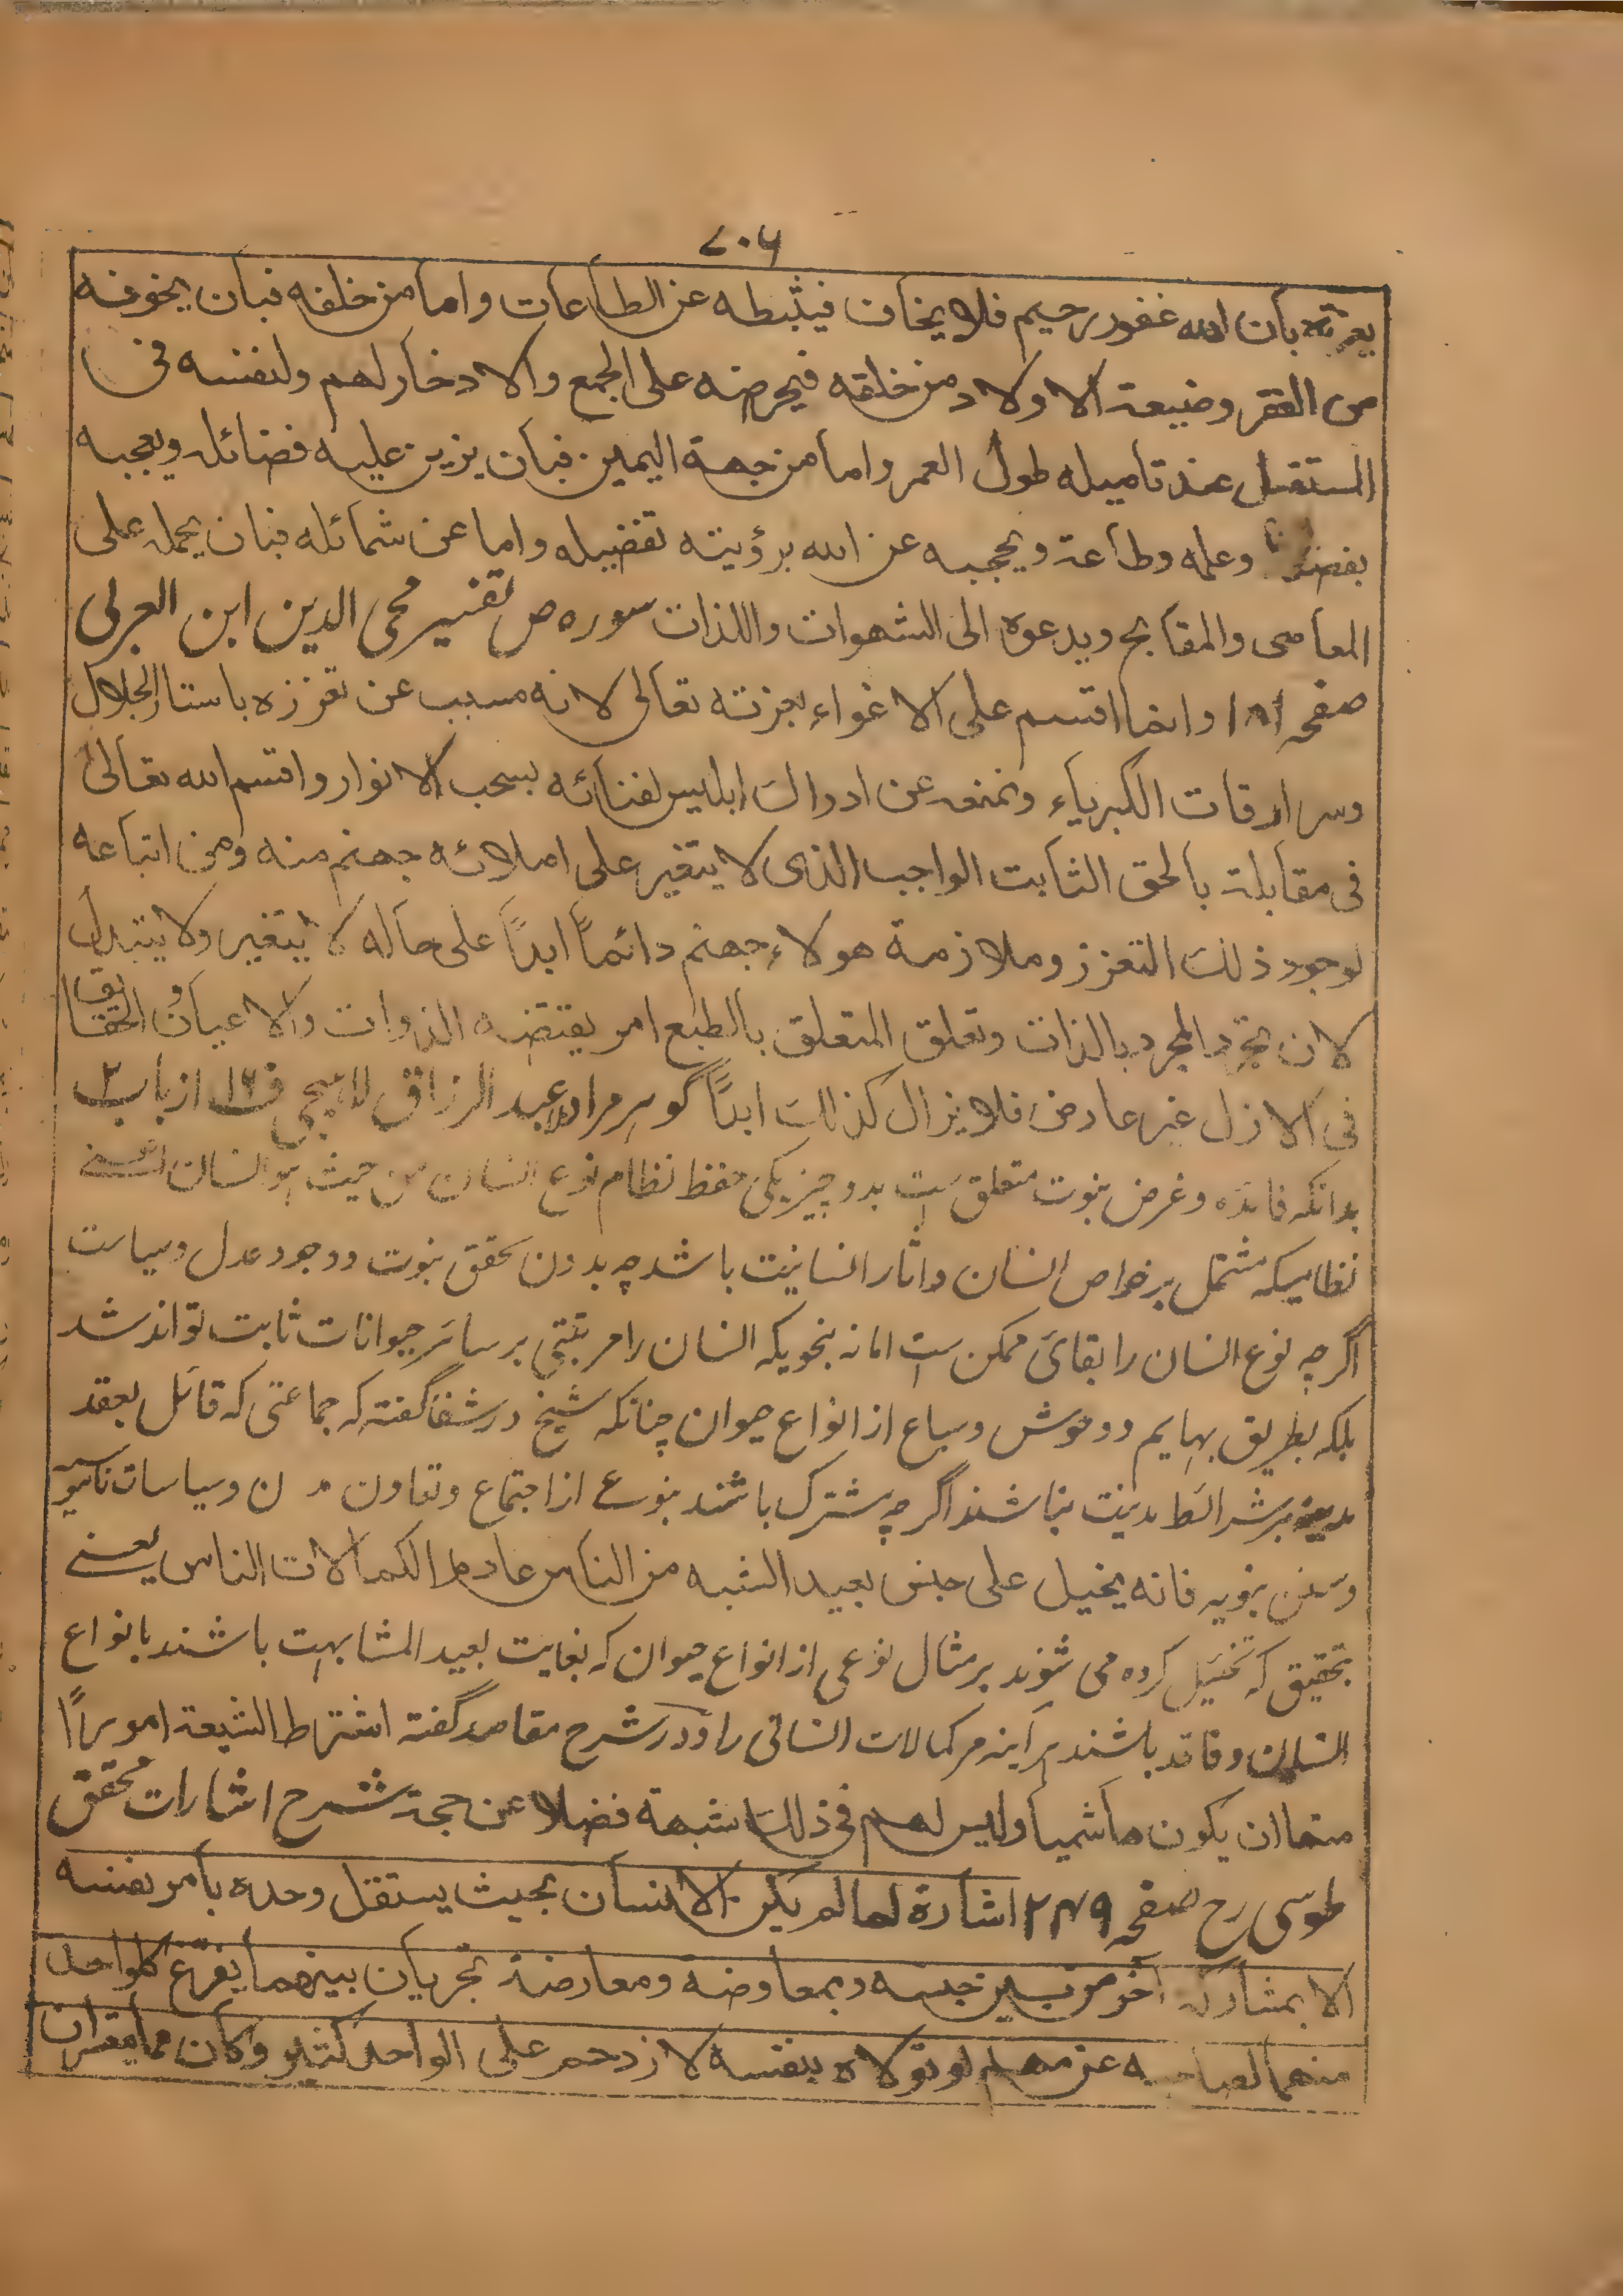 ۷۰۶
بعزته بان الله غفور رحيم فلا يخاف فيثبطه عن الطاعات واما من خلفه فبان يخوفه
من الفقر وضيعة الاولاد من خلفه فيحرضه على الجمع والادخار لهم ولنفسه في
المستقبل عند تاميله طول العمر واما من جهة اليمين فبان يزين عليه فضائله ويعجبه
بفضله وعلمه وطاعة ويحجبه عن الله برؤيته تفضيله واما عن شمائله فبان يحمله على
المعاصى والمقابح ويدعوه الى الشهوات واللذات سوره ص تفسير محى الدين ابن العربى
صفحه ۱۸۱ وانما اقسم على الاغواء بعزته تعالى لانه مسبب عن تعززه باستار الجلال
وسرادقات الكبرياء وتمنعه عن ادراك ابليس لفنائه بسحب الانوار واقسم الله تعالى
فى مقابلة بالحق الثابت الواجب الذى لا يتغير على املائه جهنم منه ومن اتباعه
لوجود ذلك التعزز وملازمة هولاء جهنم دائماً ابداً على حاله لا يتغير ولا يتبدل
لان تجرد المجرد بالذات وتعلق المتعلق بالطبع امر يقتضيه الذوات والاعيان والحقايق
فى الازل غير عارض فلا يزال كذلك ابداً گوهر مراد عبد الرزاق لاهيجى ف ۱۶ از باب ۲
بدانکه فائده و غرض نبوت متعلق است بدو چیز یکی حفظ نظام نوع انسان من حیث هو انسان یعنے
نظامیکه مشتمل بر خواص انسان و اثار انسانیت باشد چه بدون تحقق نبوت و وجود عدل و سیاست
اگر چه نوع انسان را بقائ ممکن است اما نه بنحویکه انسان را مرتبتی بر سائر حیوانات ثابت تواند شد
بلکه بطریق بهایم و وحوش و سباع از انواع حیوان چنانکه شیخ در شفا گفته که جماعتی که قائل بعقد
مدینه بر شرائط مدینت نباشند اگر چه مشترک باشند بنوعے از اجتماع و تعاون ن و سیاسات ناسوتیه
و سنن نبویه فانه يخيل على جنس بعيد الشبه من الناس عادم الكمالات الناس یعنے
بتحقیق که تخئیل کرده می شوند بر مثال نوعی از انواع حیوان که بغایت بعید المشابهت باشند بانواع
انسان و فاقد باشند هر آینه مر کمالات انسانی را و در شرح مقاصد گفته اشتراط الشيعة اموراً
منها ان يكون هاشمياً وليس لهم فى ذلك شبهة فضلا عن حجة شرح اشارات محقق
طوسی رح صفحه ۲۴۹ اشارة لما لم يكن الانسان بحيث يستقل وحده بأمر نفسه
الا بمشاركة آخر من بنى جنسه وبمعاوضه ومعارضة تجريان بينهما يفرّغ كل واحد
منهما لصاحبه عن مهم لو تولاه بنفسه لازدحم على الواحد كثير وكان مما يتعسر ان